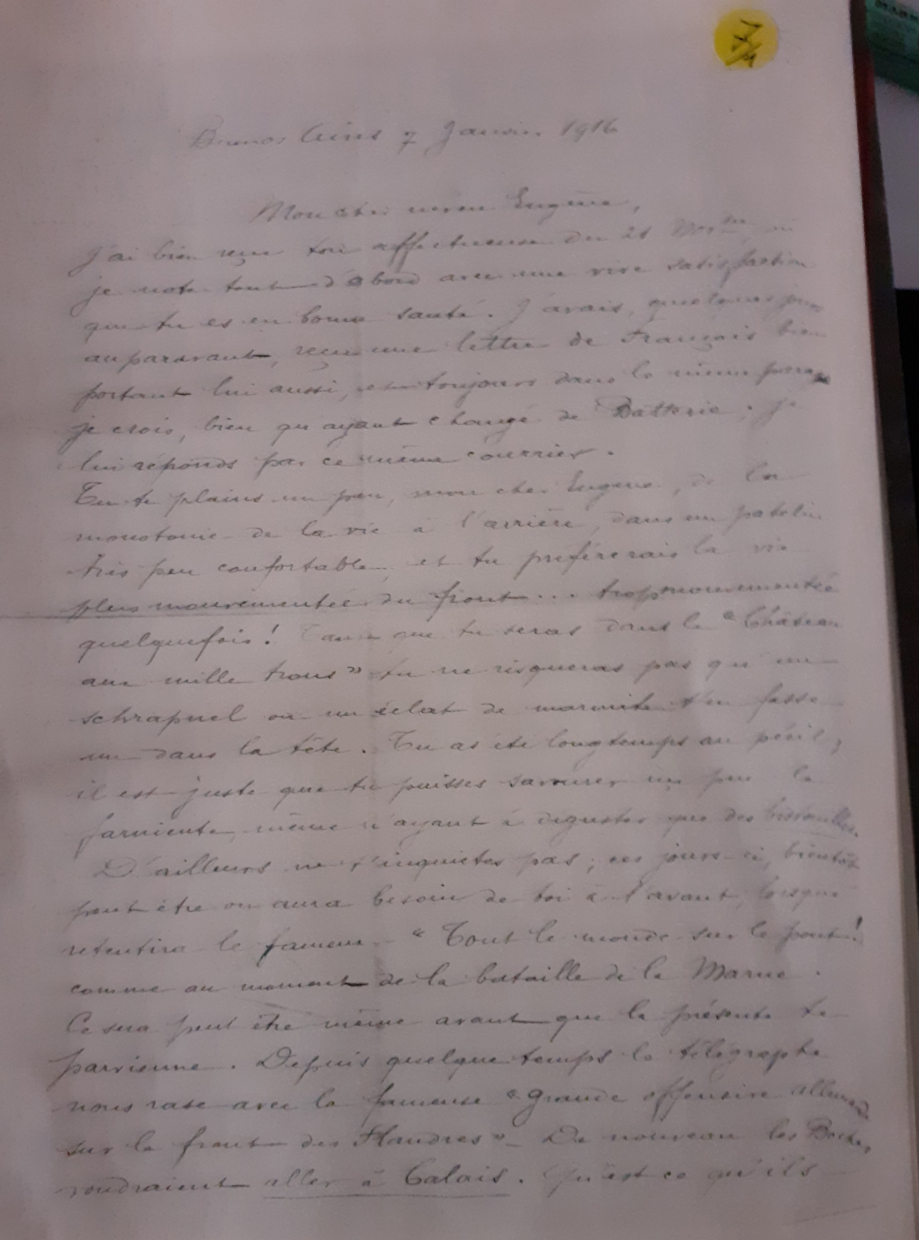 Buenos Aires 7 Janvier 1916
Mon cher neveu Eugène,
J'ai bien reçu ton affectueuse du 21 Nov.bre, où
je note tout d'abord avec une vive satisfaction
que tu es en bonne santé. J'avais, quelques jours
auparavant, reçu une lettre de François bien
portant lui aussi, et toujours dans le même
je crois, bien qu'ayant changé de Batterie. Je
lui réponds par ce même courrier.
Tu te plains un peu, mon cher Eugène, de la
monotonie de la vie à l'arrière, dans un patelin
très peu confortable, et tu préférerais la vie
plus mouvementée du front... trop mouvementée
quelquefois! Tant que tu seras dans le "Château
aux mille trous" tu ne risqueras pas qu'un
schrapnel ou un éclat de marmite t'en fasse
un dans la tête. Tu as été longtemps au péril,
il est juste que tu puisses savourer un peu le
farniente, même n'ayant à déguster que des bistouilles.
D'ailleurs ne t'inquiètes pas; ces jours-ci, bientôt
peut être on aura besoin de toi à l'avant, lorsque
retentira le fameux "Tout le monde sur le pont!
comme au moment de la bataille de la Marne.
Ce sera peut être même avant que la présente te
parvienne. Depuis quelque temps le télégraphe
nous rase avec la fameuse "grande offensive allemande
sur le front des Flandres" - De nouveau les Boches
voudraient aller à Calais. Qu'est ce qu'ils